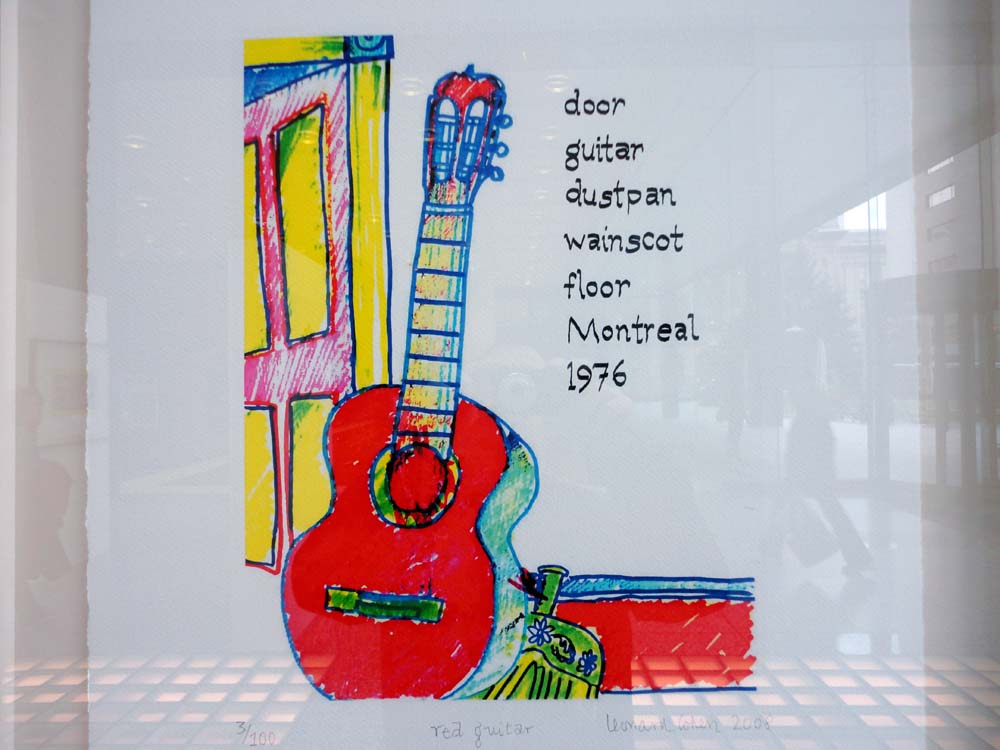 door
guitar
dustpan
wainscot
floor
Montreal
1976
3/100 red guitar Leonard Cohen 2008